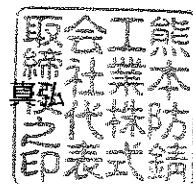 熊本防錆
工業株式
会社代表
取締役之印
真弘